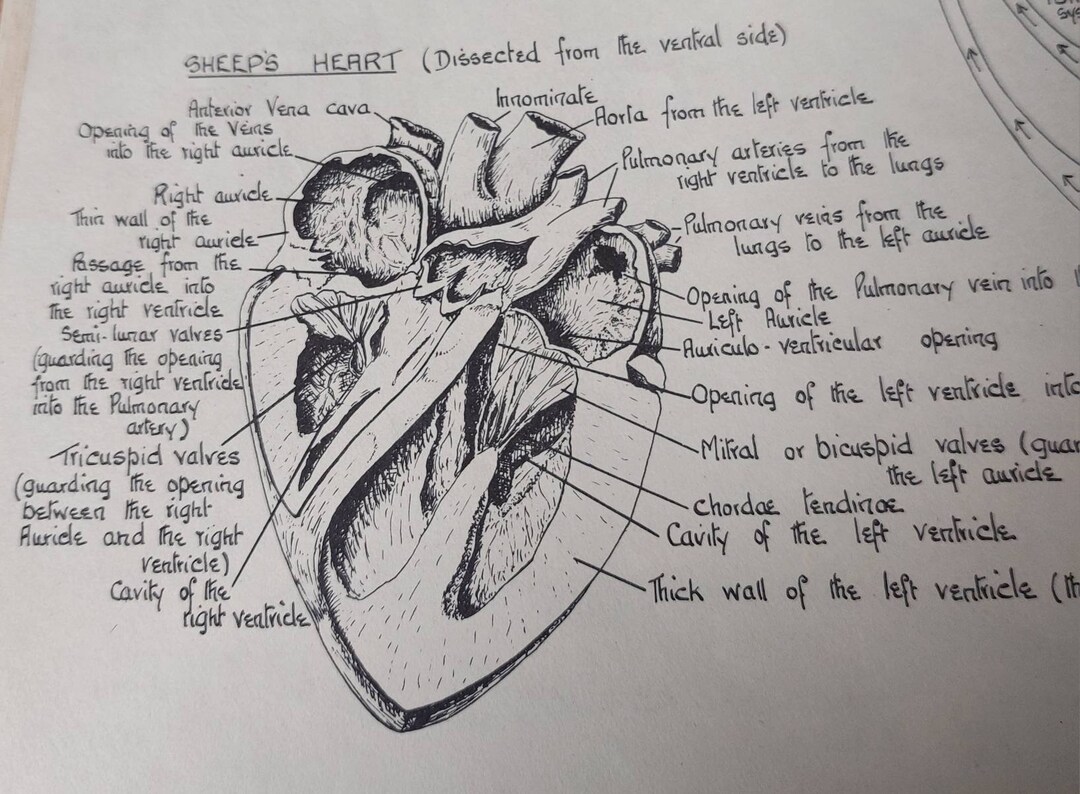 SHEEP'S HEART (Dissected from the ventral side)
Anterior Vena cava
Opening of the Veins
into the right auricle
Right auricle
Thin wall of the
right auricle
Passage from the
right auricle into
the right ventricle
Semi-lunar valves
(guarding the opening
from the right ventricle
into the Pulmonary
artery)
Tricuspid valves
(guarding the opening
between the right
Auricle and the right
ventricle)
Cavity of the
right ventricle
Innominate
Aorta from the left ventricle
Pulmonary arteries from the
right ventricle to the lungs
Pulmonary veins from the
lungs to the left auricle
Opening of the Pulmonary vein into
Left Auricle
Auriculo-ventricular opening
Opening of the left ventricle into
Mitral or bicuspid valves (guar
the left auricle
chordae tendinae
Cavity of the left ventricle
Thick wall of the left ventricle (th